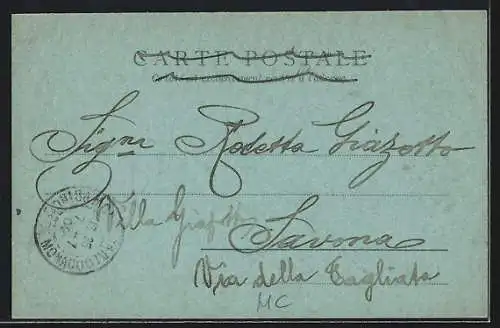 CARTE POSTALE
Sigra Rosetta Giazotto
Villa Giazotto
Savona
Via della Tagliata
MC